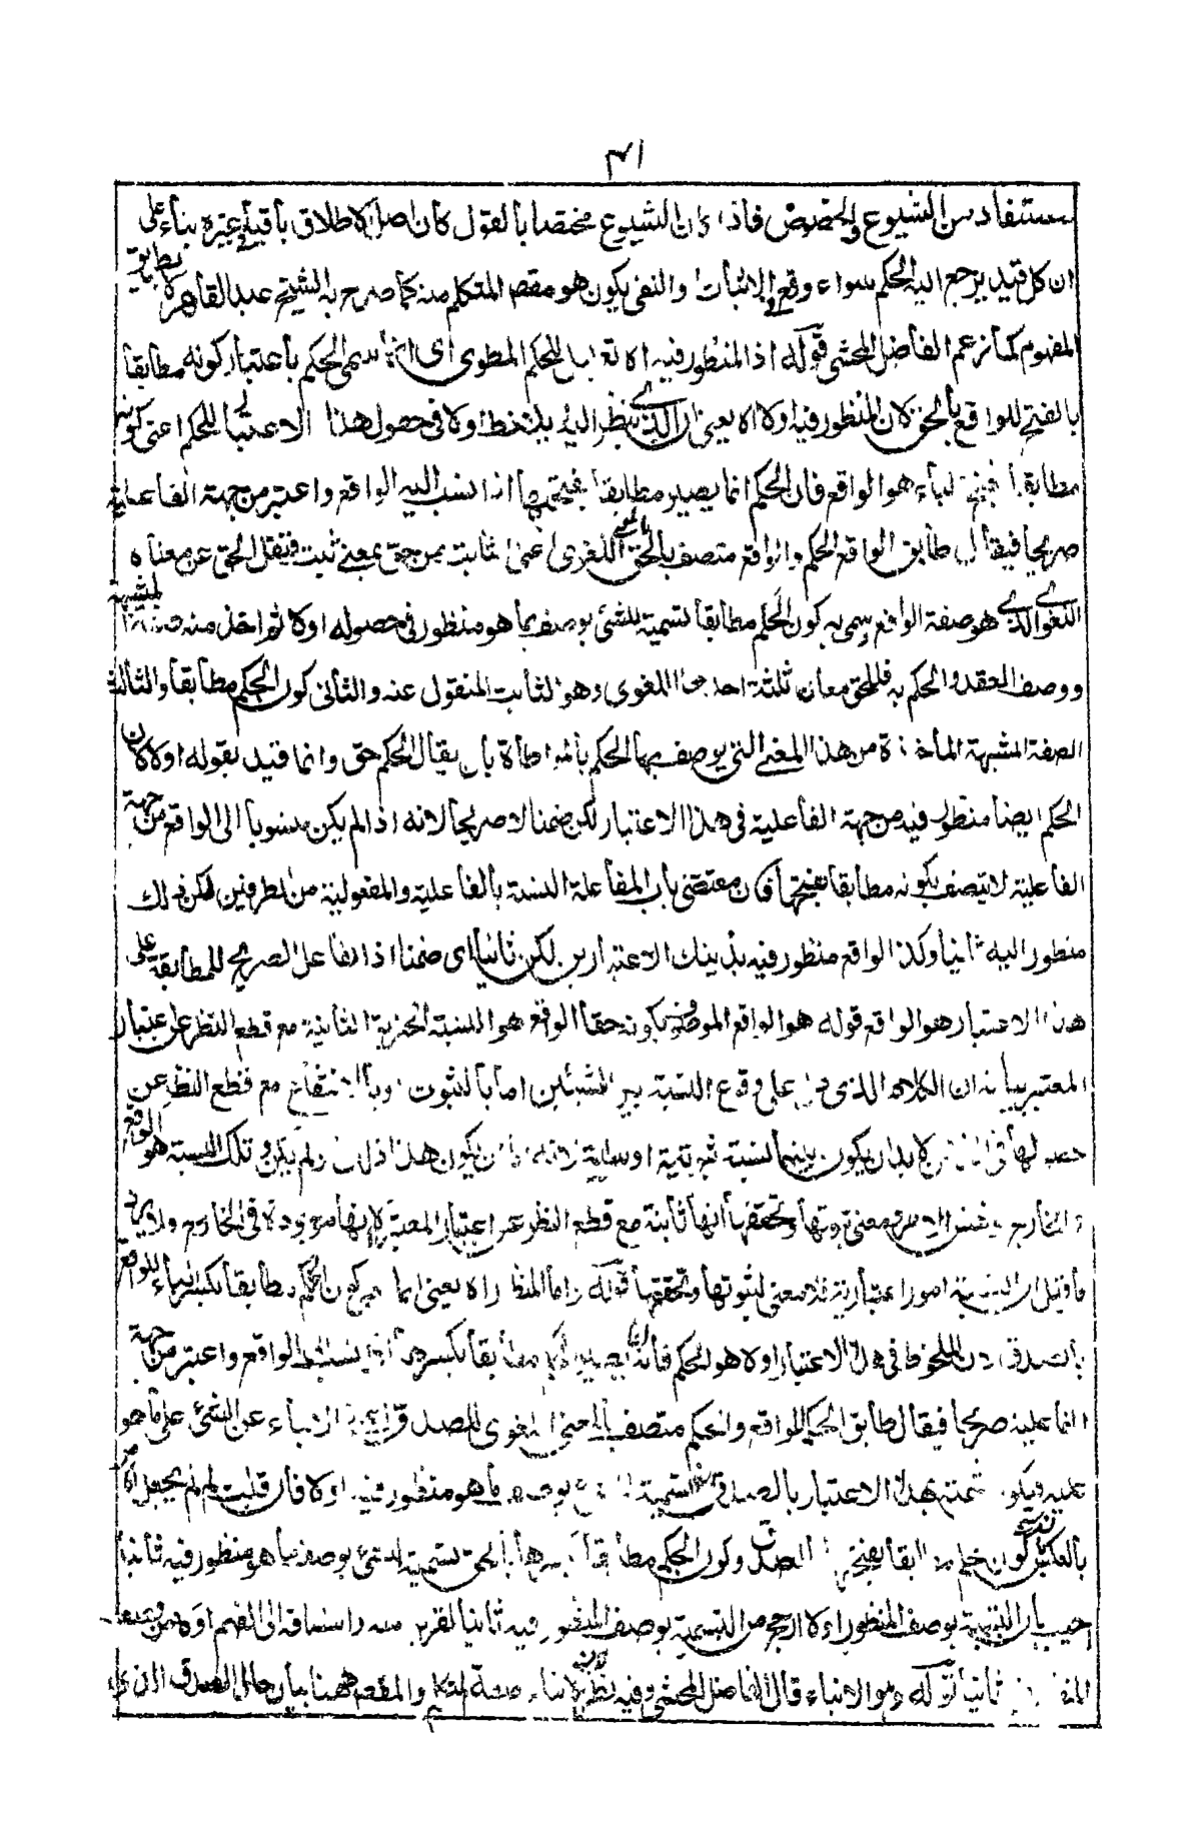 ٣١
يستفاد من الشيوع والخصوص فاذا كان الشيوع مختصا بالقول كان اصل الاطلاق باقيا في غيره بناء على
ان كل قيد يرجع اليه الحكم سواء وقع في الاثبات او النفى يكون هو مقصد المتكلم منه كما صرح به الشيخ عبد القاهر لا بطابق
المفهوم كما زعم الفاضل المحشى قوله اذ المنظور فيه اه تعليل للحكم المطوى اى انما سمى الحكم باعتبار كونه مطابقا
بالفتح للواقع بالحق لان المنظور فيه اولا اه يعنى ان الذى ينظر اليه اولا فى حصول هذا الاعتبار للحكم اعنى كونه
مطابقا بفتح الباء هو الواقع فان الحكم انما يصير مطابقا بفتحها اذا نسب اليه الواقع واعتبر من جهة الفاعلية
صريحا فيقال طابق الواقع الحكم والواقع متصف بالحق بالمعنى اللغوى اعنى الثابت من حق بمعنى ثبت فنقل الحق عن معناه
اللغوى الذى هو صفة الواقع وسمى به كون الحكم مطابقا تسمية للشئ بوصف ما هو منظور فى حصوله اولا ثم اخذ منه صفة المشبهة
ووصف العقد والحكم به فللحق معان ثلثة احدها اللغوى وهو الثابت المنقول عنه والثانى كون الحكم مطابقا والثالث
الصفة المشبهة الماخوذة من هذا المعنى التى يوصف بها الحكم بالمواطاة بان يقال الحكم حق وانما قيد بقوله اولا لان
الحكم ايضا منظور فيه من جهة الفاعلية فى هذا الاعتبار لكن ضمنا لا صريحا لانه اذا لم يكن منسوبا الى الواقع من جهة
الفاعلية لا يتصف بكونه مطابقا بفتحها فان مقتضى باب المفاعلة النسبة بالفاعلية والمفعولية من الطرفين لكن ذلك
منظور اليه ثانيا وكذا الواقع منظور فيه بذينك الاعتبارين لكن ثانيا اى ضمنا اذ الفاعل الصريح للمطابقة على
هذا الاعتبار هو الواقع قوله هو الواقع الموصوف بكونه حقا الواقع هو النسبة الخبرية الثابتة مع قطع النظر عن اعتبار
المعتبر بيانه ان الكلام الذى دل على وقوع النسبة بين الشيئين اما بالثبوت او بالانتفاء مع قطع النظر عن
حصولها فى الذهن لا بد ان يكون بينهما نسبة ثبوتية او سلبية تلك النسبة هو الواقع
والخارج ونفس الامر ومعنى ثبوتها وتحققها انها ثابتة مع قطع النظر عن اعتبار المعتبر لا انها موجودة فى الخارج ولا يرد
ما قيل ان النسبة امور اعتبارية فلا معنى لثبوتها وتحققها قوله واما المنظور اه يعنى انما كون الحكم مطابقا بكسر الباء للواقع
بالصدق لان الملحوظ فى هذا الاعتبار اولا هو الحكم فانه انما يصير الحكم مطابقا بكسرها اذا نسب الى الواقع واعتبر من جهة
الفاعلية صريحا فيقال طابق الحكم الواقع والحكم متصف بالمعنى اللغوى للصدق الانباء عن الشئ على ما هو
عليه هذا الاعتبار بالصدق تسمية بوصف ما هو منظور فيه اولا فان قلت لم لم يجعل
بالعكس كون مطابقا بفتح الصدق وكون الحكم مطابقا بكسرها بالحق تسمية للشئ بوصف ما هو منظور فيه ثانيا
اجيب بان التسمية بوصف المنظور اولا ارجح من التسمية بوصف المنظور فيه ثانيا الى الفهم اولا من
ثانيا قوله وهو الانباء قال الفاضل المحشى وفيه نظر لان الانباء صفة المتكلم والمقصد ههنا بيان حال الصدق الذى